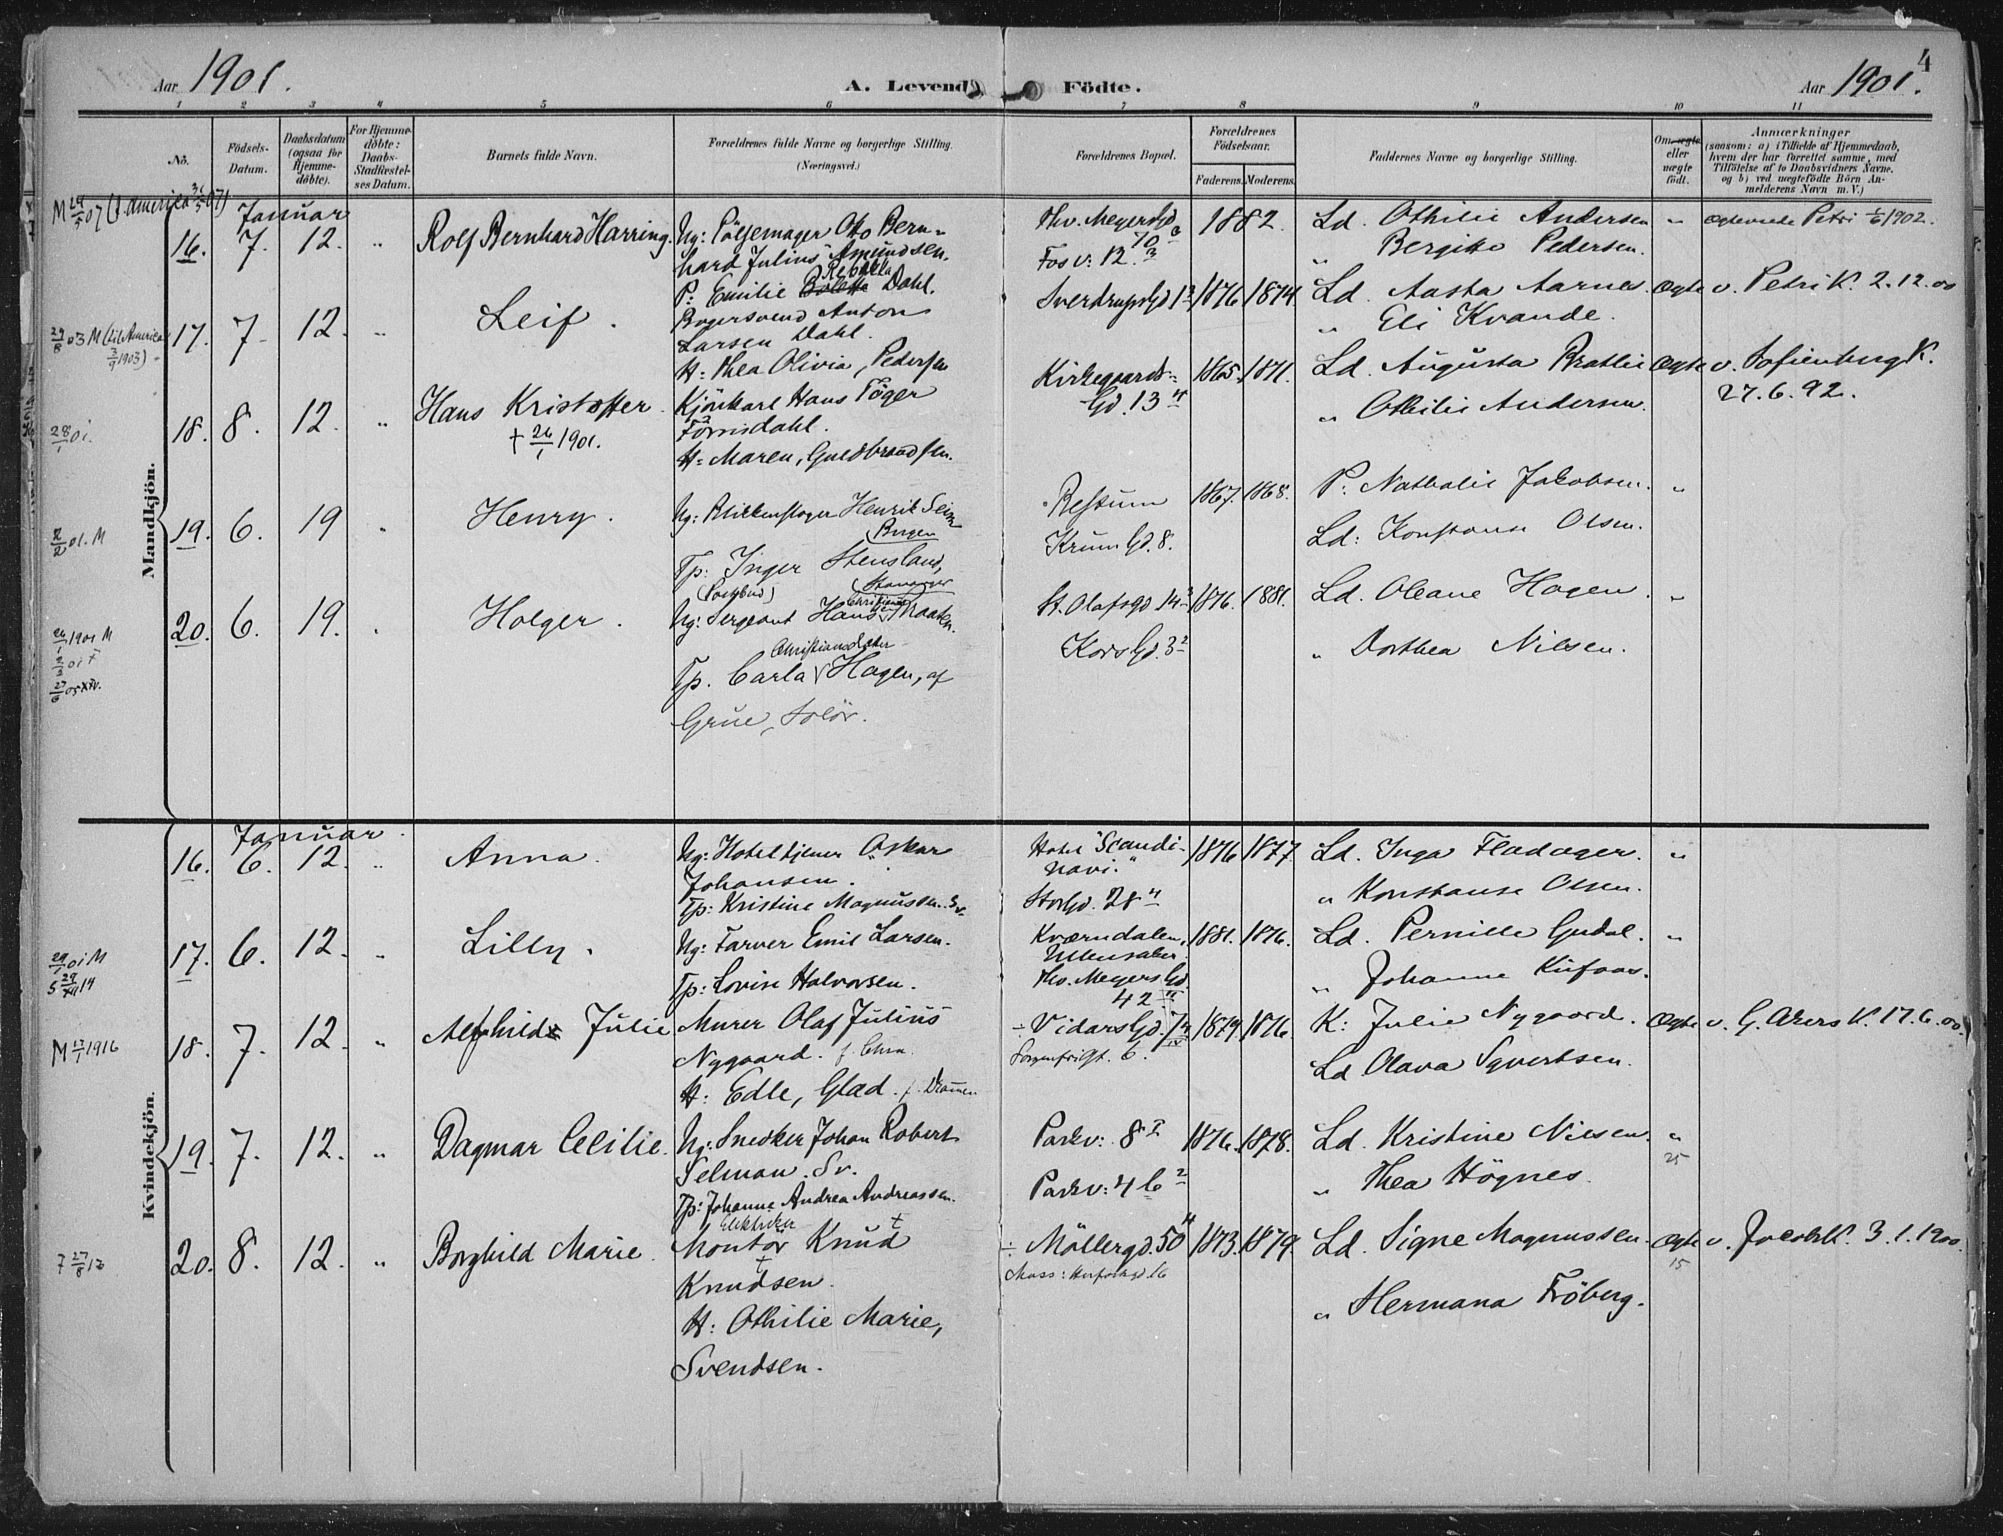 4
Aar 1901.
A. Levende Födte.
Aar 1901.
1 2 3 4 5 6 7 8 9 10 11
No.
Födsels-Datum.
Daabsdatum (ogsaa for Hjemme-döbte).
For Hjemme-döbte: Daabs-Stadfæstel-ses Datum.
Barnets fulde Navn.
Forældrenes fulde Navne og borgerlige Stilling.
(Næringsvei.)
Forældrenes Bopæl.
Forældrenes Födselsaar.
Faderens. Moderens.
Faddernes Navne og borgerlige Stilling.
Om ægte eller uægte födt.
Anmærkninger
(saasom: a) i Tilfælde af Hjemmedaab, hvem der har forrettet samme, med Tilföielse af to Daabsvidners Navne, og b) ved uægtefödte Börn An-melderens Navn m. V.)
Mandkjön.
M 29/5 07 (t. America 31/5 07)
Januar
16. 7. 12. " Rolf Bernhard Harring.
Ug: Pölsemager Oto Bern-
hard Julius Amundsen.
P: Emilie Rebekka Dahl.
Thv. Meyersgd
70
Fosv: 12. 3
1882.
Ld. Othilie Andersen
" Bergitte Pedersen.
"
Ægteviede Petri 1/6 1902.
29/8 03 M (til America
3/9 1903)
17. 7. 12. " Leif.
Bogersvend Anton
Larsen Dahl.
H: Thea Olivia, Pedersen
Sverdrupsgd 13
1876 1874.
Ld. Aasta Aarnes.
" Eli Kvande.
Ægte v. Petri K. 2.12.00
28/1 01.
18. 8. 12. " Hans Kristoffer.
+ 26/1 1901.
Kjörekarl Hans Töger
Törrisdahl.
H: Maren, Guldbrandsen.
Kirkegaards-
Gd. 13 4
1865. 1871.
Ld. Augusta Bratlie
" Othilie Andersen.
Ægte v. Sofienberg K.
27.6.92.
2/2 01. M
19. 6. 19 " Henry.
Ug: Blikkenslager Henrik Seim
Bergen
Tp: Inger Stensland,
Stavanger
Restum
Krumgd. 8.
1867. 1868.
P: Nathalie Jakobsen.
Ld: Konstanse Olsen.
"
26/1 1901 M
20. 6. 19. " Holger.
(Postbud)
Ug: Sergeant Hans Braaten.
Christiansdatter
Tp. Carla Hagen, af
Grue, Solör.
St. Olafsgd 14 3
Korsgd. 3 2
1876. 1881.
Ld. Oleane Hagen.
" Dorthea Nilsen.
"
Kvindekjön.
Januar.
16. 6. 12. " Anna.
Ug: Hoteltjener Oskar
Johansen.
Tp: Kristine Magnussen. Sv.
Hotel "Scandi-
navi."
Storgd. 28 4
1876 1877.
Ld. Inga Fladager.
" Konstanse Olsen.
"
29/1 01 M
17. 6. 12. " Lilly.
Ug: Farver Emil Larsen.
Tp: Lovise Halvorsen.
Kværndalen,
Ullensaker
Ths. Meyersgd.
42
1881. 1876.
Ld. Pernille Gudal.
" Johanne Kufaas.
"
M 17/1 1916
18. 7. 12. " Alfhild Julie
Murer Olaf Julius
Nygaard. f. Chra.
H: Edle, Glad. f. Drammen
÷ Vidarsgd. 7
Sorgenfrigt. 6.
1874. 1876.
K: Julie Nygaard.
Ld Olava Syvertsen.
Ægte v. G. Akers K. 17.6.00.
19. 7. 12. " Dagmar Cecilie.
Ug: Snedker Johan Robert
Selman. Sv.
Tp: Johanne Andrea Andreassen.
Parkv: 8 I
Parkv: 4 b 2
1876. 1878.
Ld. Kristine Nielsen.
" Thea Högnes.
"
25
7 27/8 13
20. 8. 12. " Borghild Marie.
Elektriker
Montör Knud
Knudsen.
H: Othilie Marie,
Svendsen.
÷ Möllergd. 50 4
1873. 1879.
Ld. Signe Magnussen.
" Hermana Fröberg.
Ægte v. Jacobs K. 3.1.1900.
15